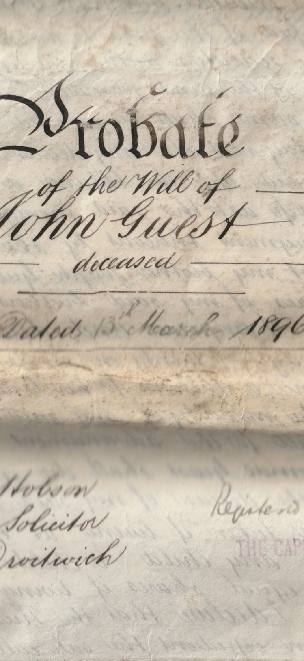 Probate
of the Will of
John Guest
deceased
Dated 13th March 1896
Hobson
Solicitor
Droitwich
Registered
THE CAP